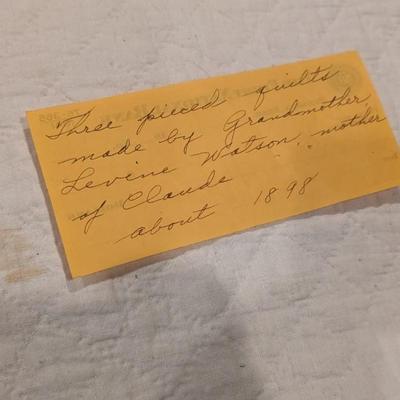 Three pieced quilts
made by Grandmother,
Levine Watson, mother
of Claude
about 1898